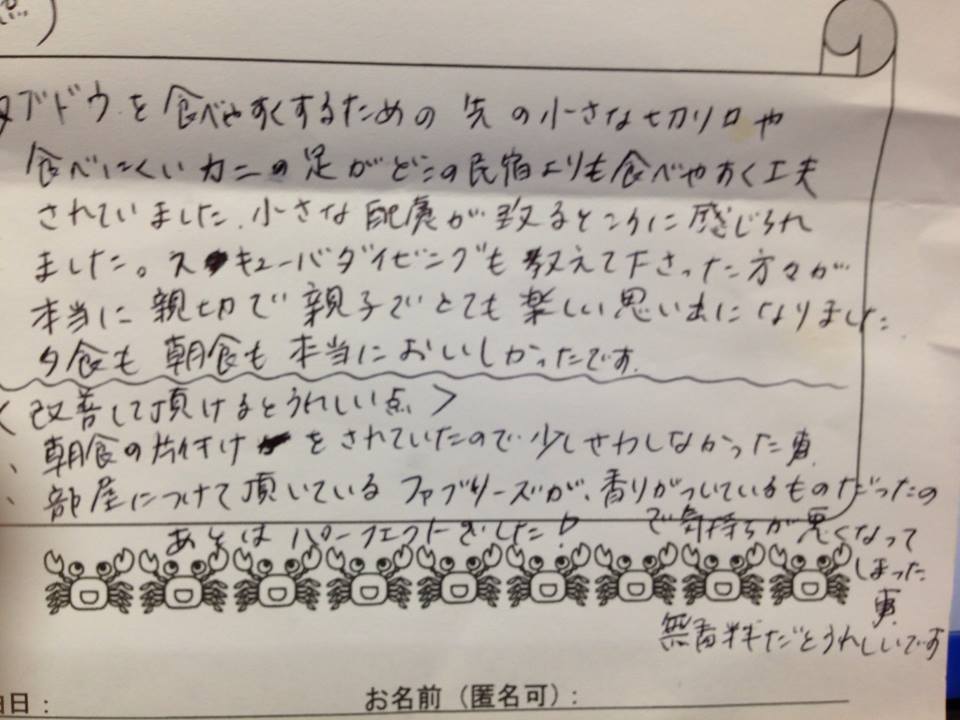 ブドウを食べやすくするための先の小さな切り口や
食べにくいカニの足がどこの民宿よりも食べやすく工夫
されていました。小さな配慮が致るところに感じられ
ました。スキューバダイビングも教えて下さった方々が
本当に親切で親子でとても楽しい思い出になりました
夕食も朝食も本当においしかったです。
〈改善して頂けるとうれしい点〉
、朝食の片付けをされていたので少しせわしなかった事
、部屋につけて頂いているファブリーズが、香りがついているものだったの
で気持ちが悪くなって
しまった
事
あとはパーフェクトでした!
無香料だとうれしいです
日:
お名前(匿名可):